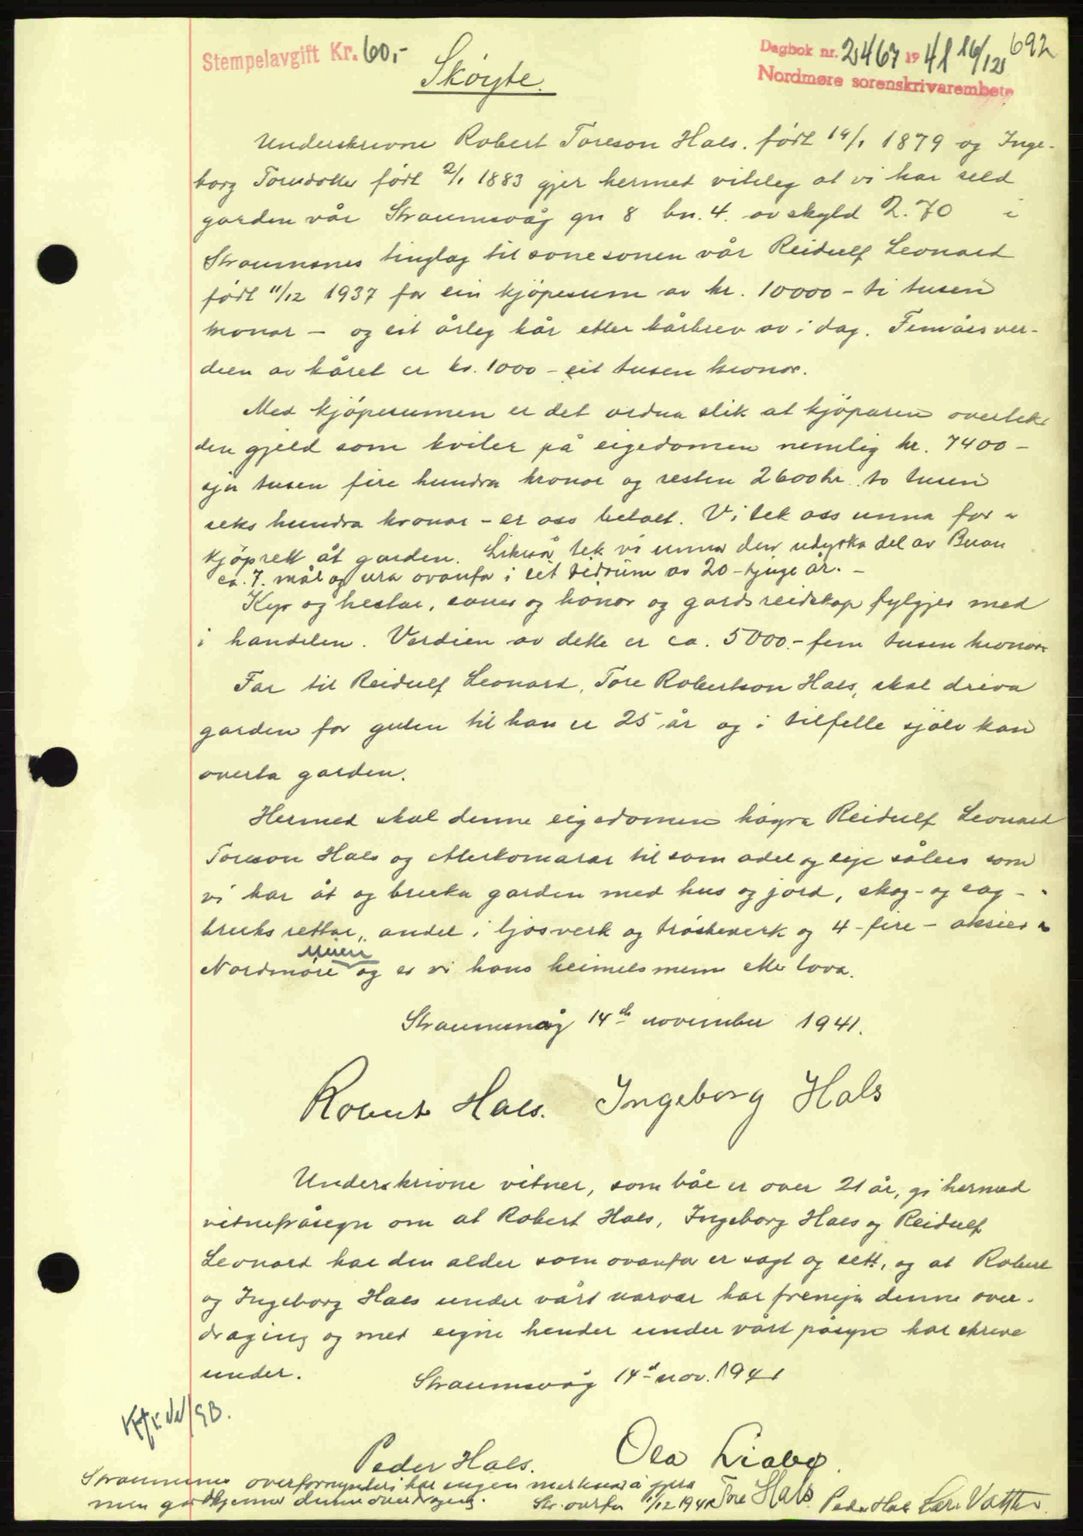 Stempelavgift Kr. 60,-
Dagbok nr. 2467 1941 16/12 692
Nordmøre sorenskrivarembete
Skøyte.
Underskrivne Robert Toreson Hals. født 14/1 1879 og Inge-
borg født 2/1 1883 gjer hermed viteleg at vi har seld
garden vår Straumsvåg gn 8 bn. 4. av skyld 2.70 i
Straumsnes tinglag til sonesonen vår Reidulf Leonard
født 11/12 1937 for ein kjøpesum av kr. 10000 - ti tusen
kronor - og eit årleg kår etter kårbrev av i dag. Femårsver-
dien av kåret er kr. 1000 - eit tusen kronor.
Med kjøpesummen er det ordna slik at kjøparen overtek
den gjeld som kviler på eigedomen nemlig kr. 7400 -
sju tusen fire hundra kronor og resten 2600 kr. to tusen
seks hundra kronor - er oss betalt. Vi tek oss unna for -
kjøprett åt garden. Likeså tek vi unna den udyrka del av
ca. 7. mål og ura ovanfor i eit tidrum av 20 - tjuge år. -
Kyr og hestar, sauer og hønor og gardsreidskap fylgjer med
i handelen. Verdien av dette er ca. 5000.- fem tusen kronor.
Far til Reidulf Leonard, Tore Robertson Hals, skal driva
garden for guten til han er 25 år og i tilfelle sjølv kan
overta garden.
Hermed skal denne eigedomen høyra Reidulf Leonard
Toreson Hals og etterkomarar til som odel og eige såleis som
vi har åt og bruka garden med hus og jord, skog- og sag-
bruksrettar, andel i ljosverk og trøskeverk og 4 - fire - aksier i
meieri
Nordmøre og er vi hans heimelsmenn etter lova.
Straumsvåg 14de november 1941.
Robert Hals. Ingeborg Hals
Underskrivne vitner, som båe er over 21 år, gi hermed
vitnefråsegn om at Robert Hals, Ingeborg Hals og Reidulf
Leonard har den alder som ovanfor er sagt og sett, og at Robert
og Ingeborg Hals under vårt nærvær har denne over-
draging og med eigne hender under vårt påsyn har skreve
under.
Straumsvåg 14d nov. 1941
Peder Hals. Ola Liabø.
Straumsnes overformynderi har ingen merknad å gjera
men godkjenner denne overdraging.
Str. overfor 1/12 1941 Tore Hals. Peder Hals